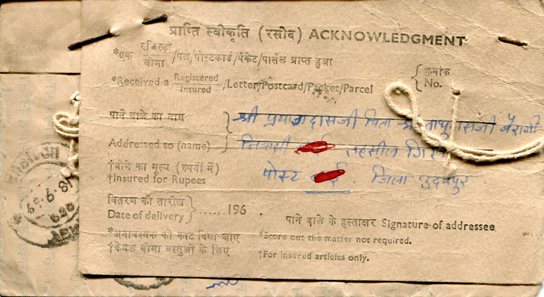 प्राप्ति स्वीकृति (रसीद) ACKNOWLEDGMENT
*एक रजिस्ट्री/बीमा/पत्र/पोस्टकार्ड/पैकेट/पार्सल प्राप्त हुआ
*Received a Registered/Insured/Letter/Postcard/Packet/Parcel
क्रमांक
No.
पाने वाले का नाम श्री प्रयागदासजी पिता
Addressed to (name) निवासी तहसील
†बीमे का मूल्य (रुपयों में)
†Insured for Rupees पोस्ट जिला उदयपुर
वितरण की तारीख
Date of delivery ......196 .
पाने वाले के हस्ताक्षर Signature of addressee
*अनावश्यक को काट दिया जाए *Score out the matter not required.
†केवल बीमा वस्तुओं के लिए †For insured articles only.